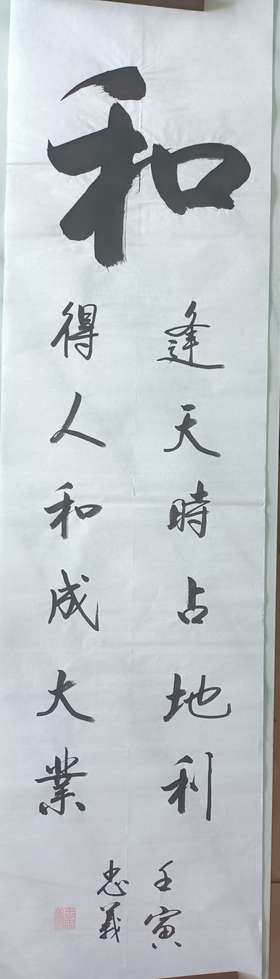 和
逢天時占地利
得人和成大業
壬寅
忠義